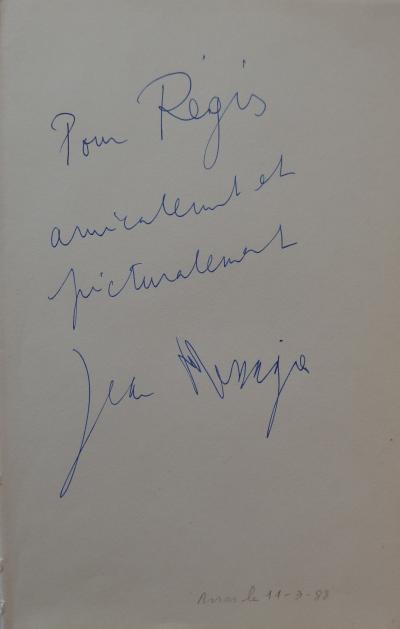 Pour Régis
amicalement et
picturalement
Jean Messagier
Arras le 11-3-88